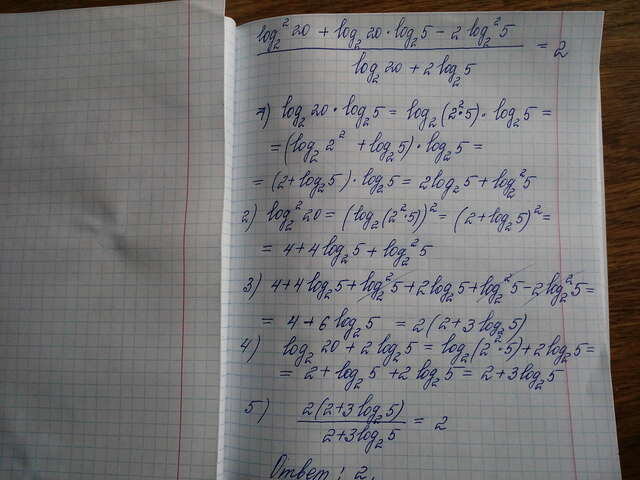 log₂²20 + log₂20·log₂5 - 2log₂²5
log₂20 + 2log₂5
= 2
1) log₂20·log₂5 = log₂(2²·5)·log₂5 =
= (log₂2² + log₂5)·log₂5 =
= (2+log₂5)·log₂5 = 2log₂5 + log₂²5
2) log₂²20 = (log₂(2²·5))² = (2+log₂5)² =
= 4+4log₂5 + log₂²5
3) 4+4log₂5 + log₂²5 + 2log₂5 + log₂²5 - 2log₂²5 =
= 4+6log₂5 = 2(2+3log₂5)
4) log₂20 + 2log₂5 = log₂(2²·5) + 2log₂5 =
= 2+log₂5 + 2log₂5 = 2+3log₂5
5)
2(2+3log₂5)
2+3log₂5
= 2
Ответ: 2.